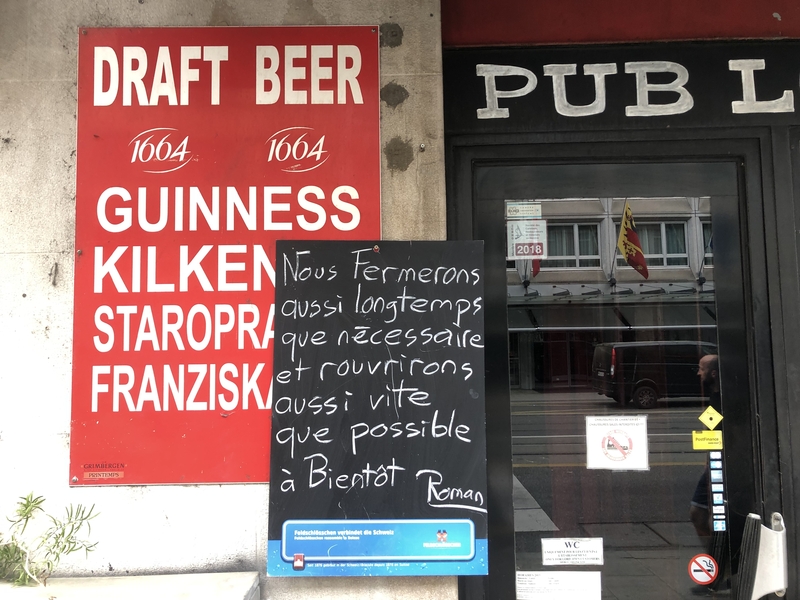 DRAFT BEER
1664 1664
GUINNESS
KILKEN
STAROPRA
FRANZISKA
GRIMBERGEN
PUB L
2018
Nous Fermerons
aussi longtemps
que nécessaire
et rouvrirons
aussi vite
que possible
à Bientôt
Roman
Feldschlösschen verbindet die Schweiz
PostFinance
WC